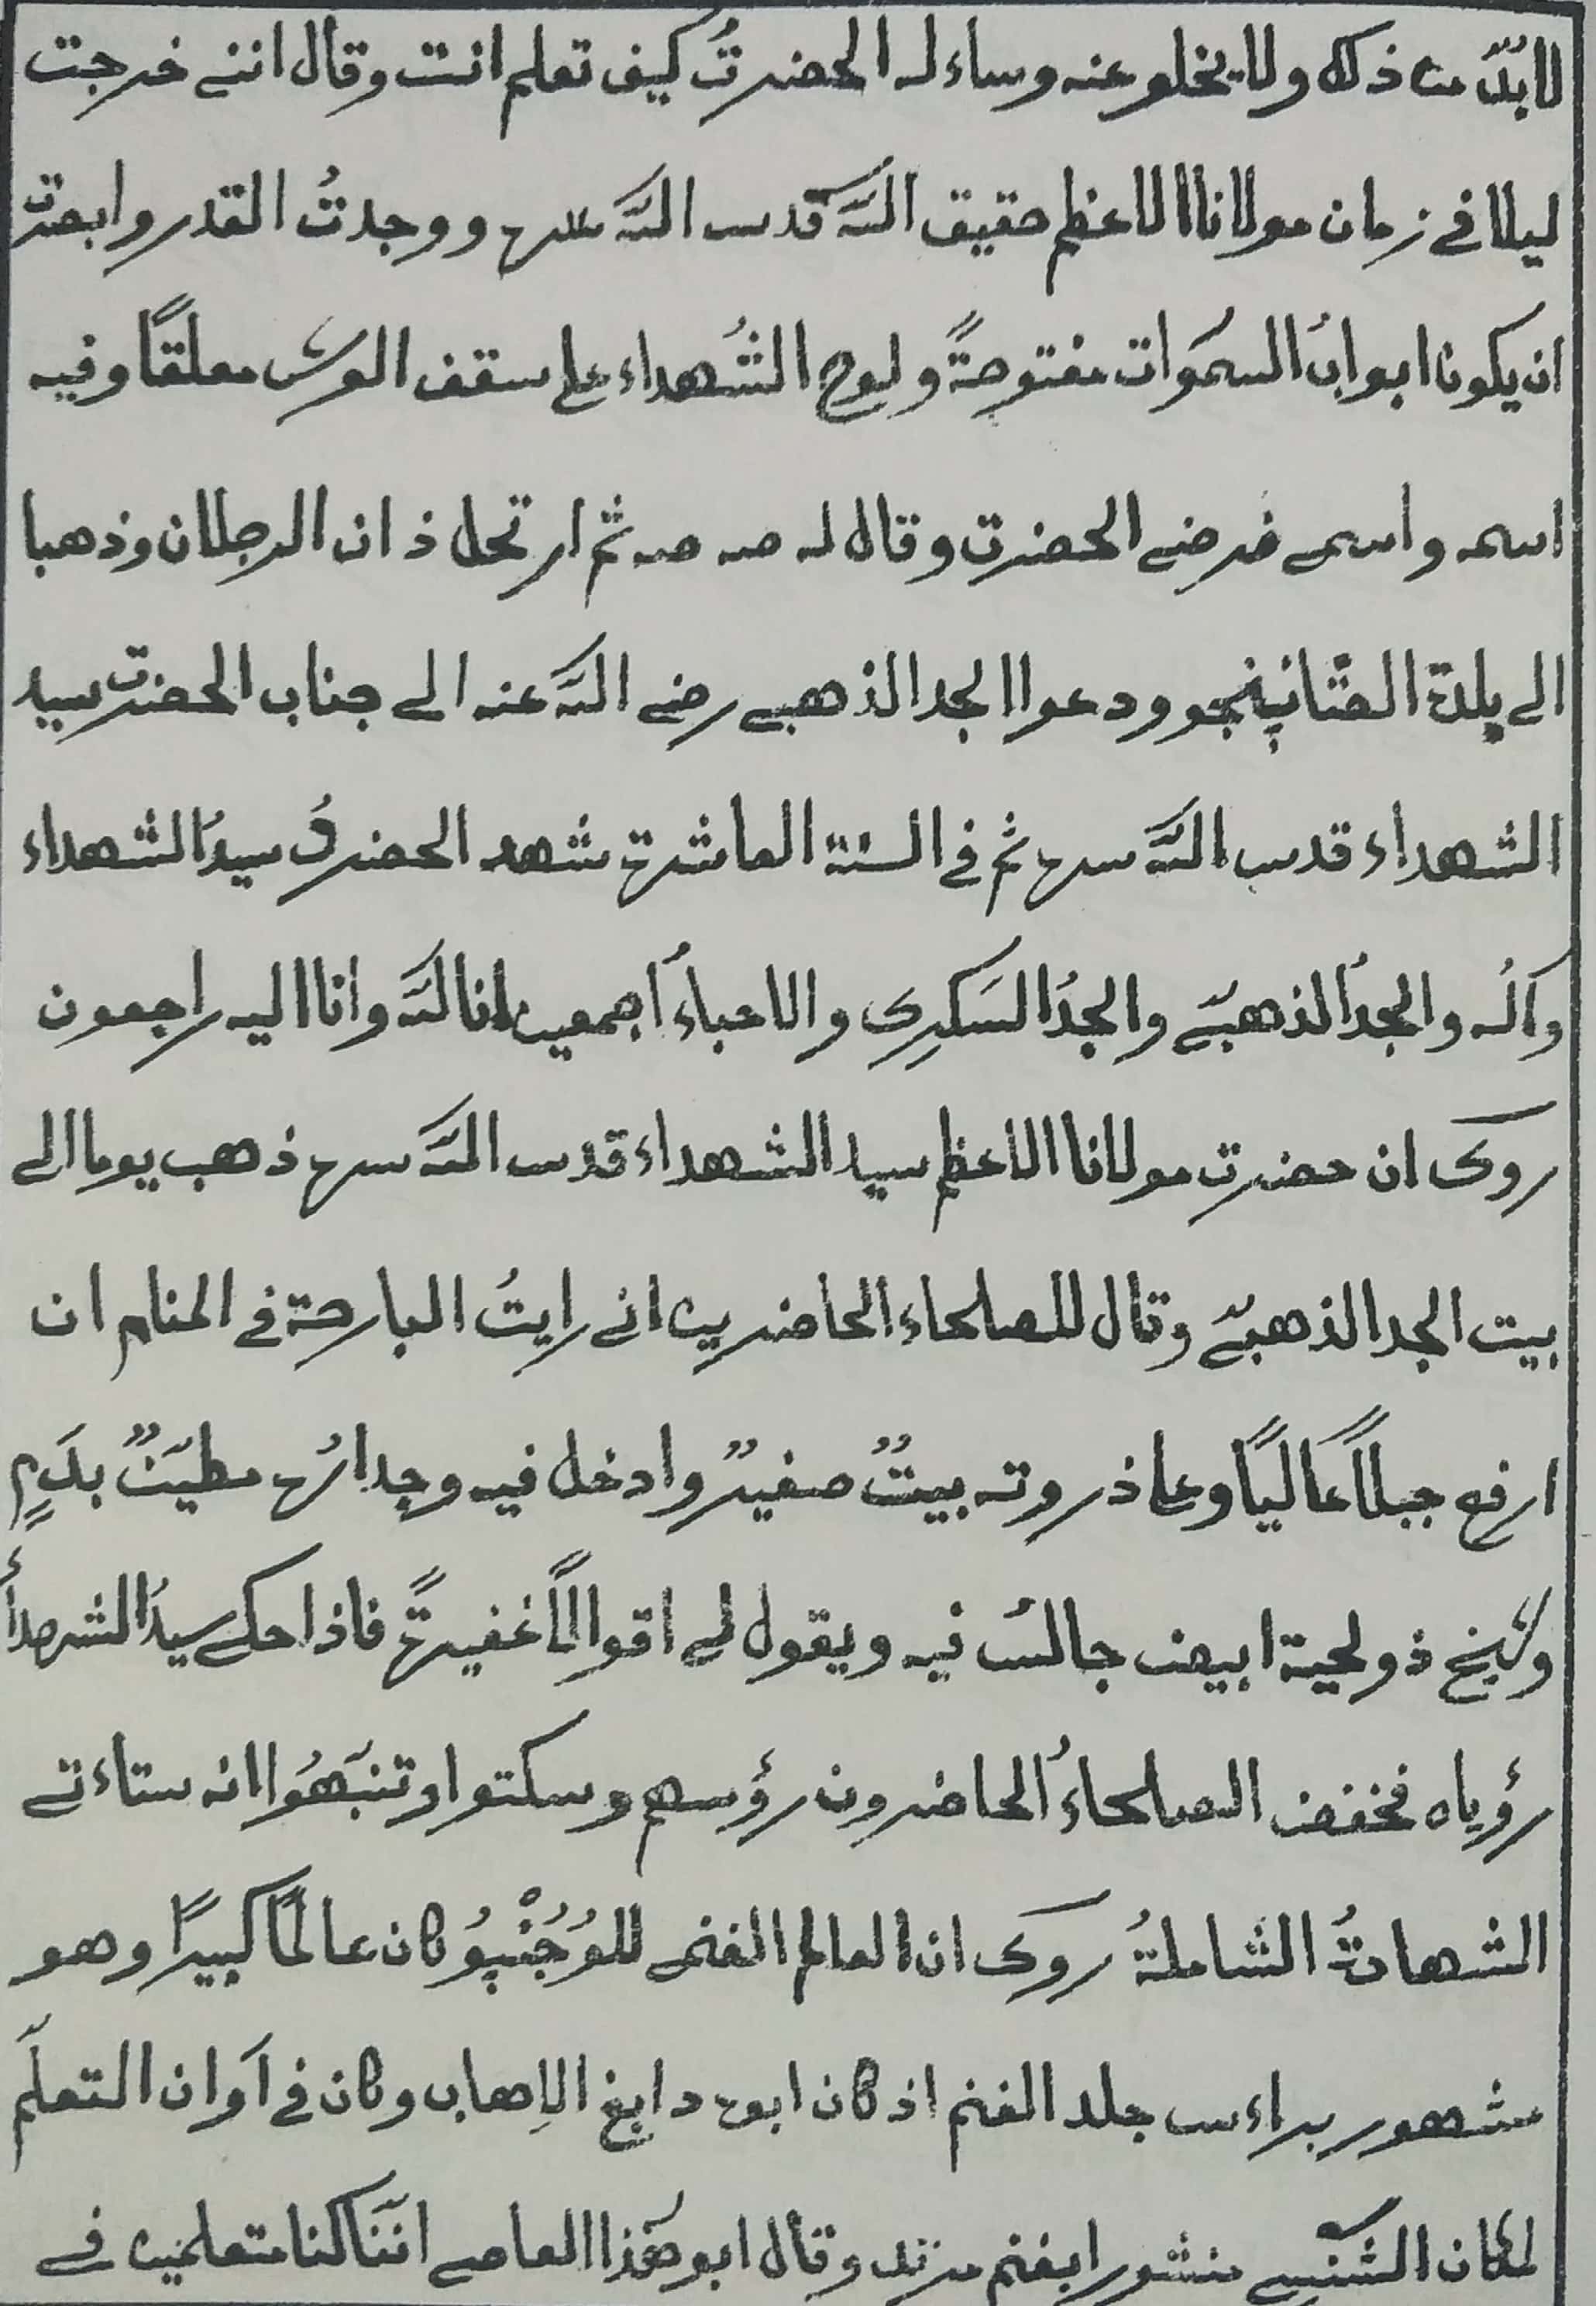 لابُدّ من ذلك ولا يخلو عنه وساءله الحضرتُ كيف تعلم انت وقال انني خرجت
ليلا في زمان مولانا الاعظم حقيق اللّٰه قدس اللّٰه سره ووجدتُ القدر وابصرت
ان يكون ابوابُ السمٰوات مفتوحةً ولوح الشُهداء على سقف العرش معلقًا وفيه
اسمه واسمي فرضي الحضرت وقال له صه صه ثم ارتحل ذان الرجلان وذهبا
الى بلدة ودعوا الجد الذهبي رضي اللّٰه عنه الى جناب الحضرت سيد
الشهداء قدس اللّٰه سره ثم في السنة العاشرة شهد الحضرتُ سيدُ الشهداء
وآلُه والجدُ الذهبيّ والجدُ السَكرِى والاحباءُ اجمعين انا للّٰه وانا اليه راجعون
روى ان حضرت مولانا الاعظم سيد الشهداء قدس اللّٰه سره ذهب يوما الى
بيت الجد الذهبيّ وقال للصلحاء الحاضرين اني رايتُ البارحة في المنام ان
ارفع جبلاً عاليًا وعلى ذروته بيتٌ صغيرٌ وادخل فيه وجدارُه مطيّنٌ بدَمٍ
وشيخ ذو لحية ابيض جالسٌ فيه ويقول لي اقوالاً غفيرةً فاذا حكى سيدُ الشهداءُ
رؤياه فخفض الصلحاءُ الحاضرون رؤسهم وسكتوا وتنبّهُوا انه ستاءتي
الشهادةُ الشاملةُ روى ان العالم الغنمي كان عالمًا كبيرًا وهو
مشهور براءس جلد الغنم اذ كان ابوه دابغ الاِهاب وكان في آوان التعلّم
لمكان منشورا بغنم وقال ابو هٰذا العاصي انّنا كنا متعلمين في